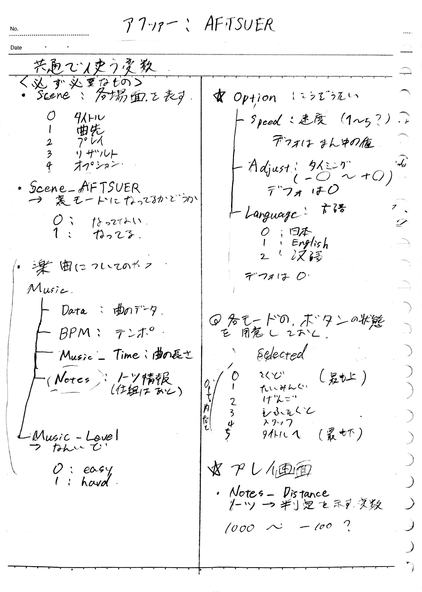 No.
Date
アフツァー: AFTSUER
共通で使う変数
<必ず必要なもの>
・Scene: 各場面を表す
0 タイトル
1 曲先
2 プレイ
3 リザルト
4 オプション
・Scene_AFTSUER
→ 裏モードになってるかどうか
0: なってない
1: なってる
・楽曲についてのやつ
Music
Data: 曲のデータ
BPM: テンポ
Music_Time: 曲の長さ
(Notes: ノーツ情報
(仕組はおと)
Music_Level
→ なんいど
0: easy
1: hard
☆ Option: こうぞうたい
Speed: 速度 (1〜5?)
デフォはまん中の値
Adjust: タイミング
(-○ 〜 +○)
デフォは0
Language: 言語
0: 日本
1: English
2: 汉语
デフォは0
◎ 各モードの、ボタンの状態
を用意しておく
Selected
0 そくど (最も上)
1 たいみんぐ
2 げんご
3
4 スタッフ
5 タイトルへ (最も下)
☆ プレイ画面
・Notes_Distance
ノーツ→判定を示す変数
1000 〜 -100?